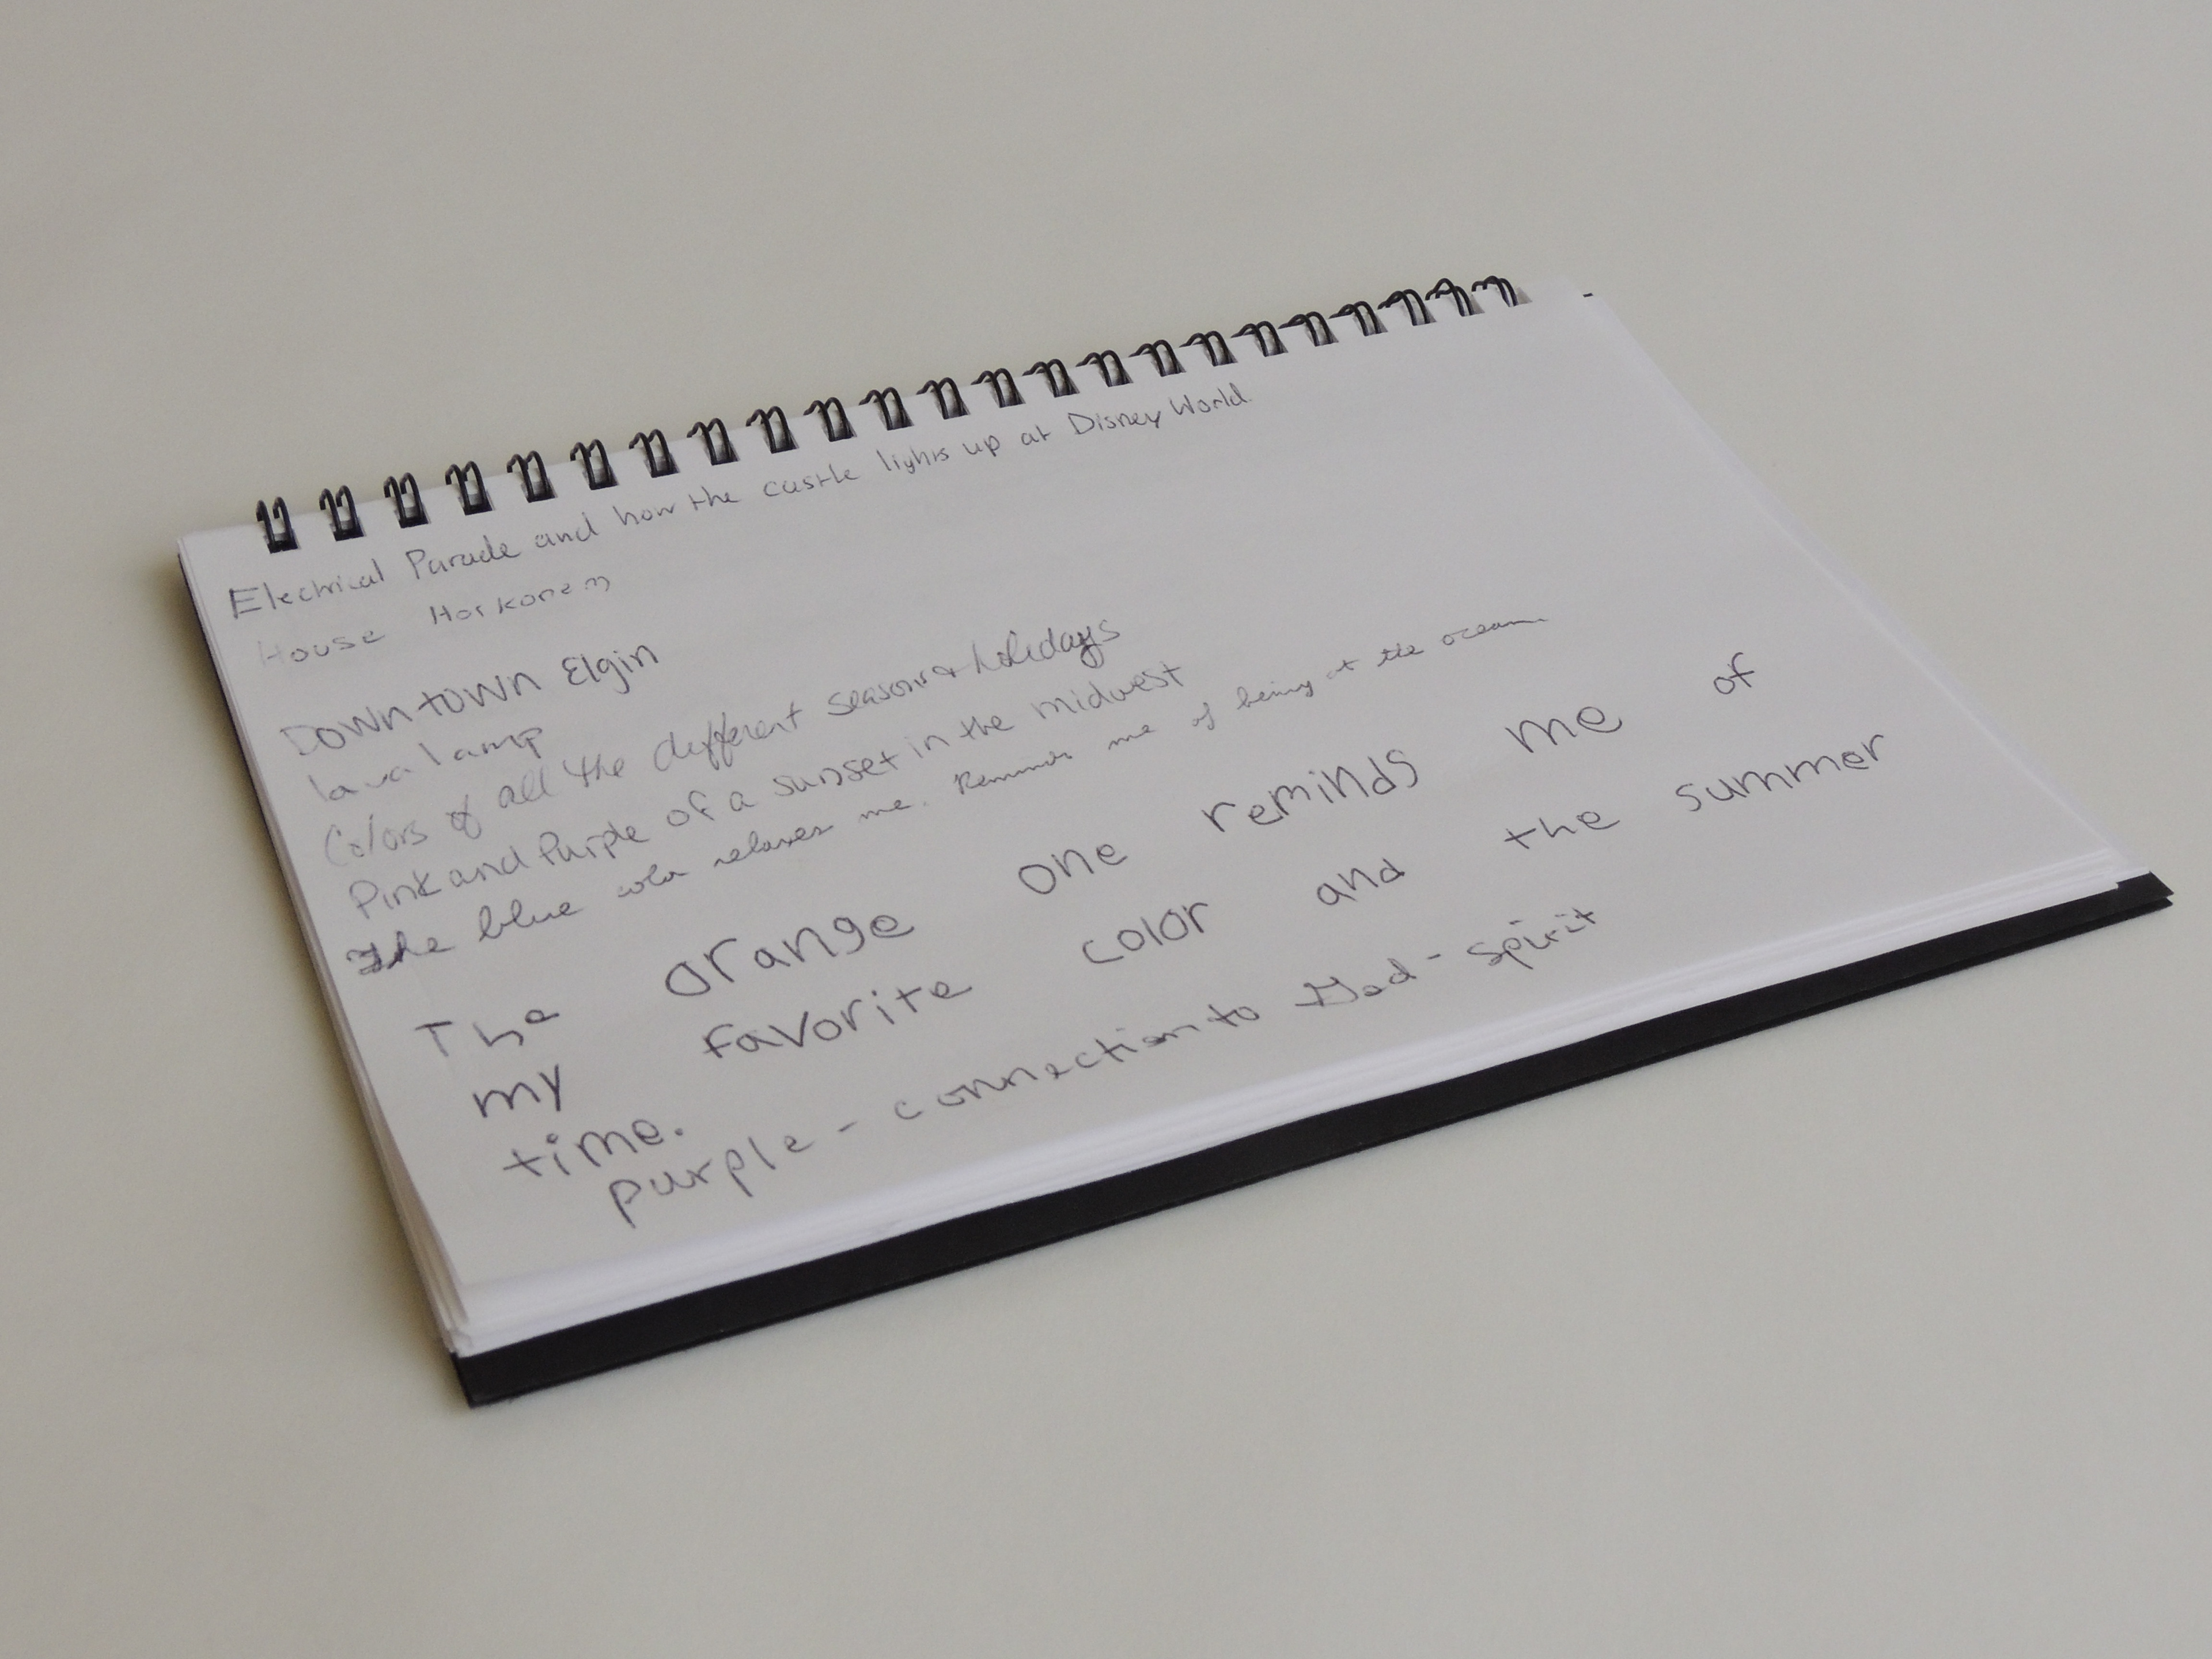 Electrical Parade and how the castle lights up at Disney World.
House Harkonen
DOWNTOWN Elgin
lava lamp
Colors of all the different seasons & holidays
Pink and Purple of a sunset in the midwest
The blue color relaxes me. Reminds me of being at the ocean.
The orange one reminds me of
my favorite color and the summer
time.
purple - connection to God - spirit